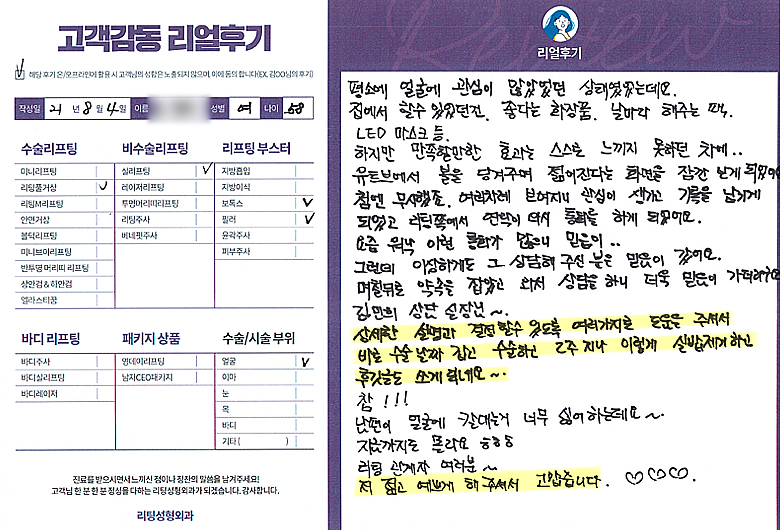 고객감동 리얼후기
해당 후기 온/오프라인에 활용 시 고객님의 성함은 노출되지 않으며, 이에 동의 합니다(EX. 김OO님의 후기)
작성일 21년 8월 4일 이름 성별 여 나이 58
수술리프팅
미니리프팅
리팅풀거상
리팅M리프팅
안면거상
볼턱리프팅
미니브이리프팅
반투명 머리띠 리프팅
상안검 & 하안검
엘라스티꿈
비수술리프팅
실리프팅
레이저리프팅
투명머리띠리프팅
리팅주사
버네핏주사
리프팅 부스터
지방흡입
지방이식
보톡스
필러
윤곽주사
피부주사
바디 리프팅
바디주사
바디실리프팅
바디레이저
패키지 상품
영데이리프팅
남자CEO패키지
수술/시술 부위
얼굴
이마
눈
목
바디
기타 ( )
진료를 받으시면서 느끼신 점이나 칭찬의 말씀을 남겨주세요!
고객님 한 분 한 분 정성을 다하는 리팅성형외과가 되겠습니다. 감사합니다.
리팅성형외과
Review
리얼후기
평소에 얼굴에 관심이 많았었던 상태였었는데요.
집에서 할수 있었던건. 좋다는 화장품. 날마다 해주는 팩.
LED 마스크 등.
하지만 만족할만한 효과는 스스로 느끼지 못하던 차에..
유트브에서 볼을 당겨주며 젊어진다는 화면을 잠깐 보게 되었어
첨엔 무시했죠. 여러차례 보여지니 관심이 생기고 기록을 남기게
되었고 리팅쪽에서 연락이 와서 통화를 하게 되었어요.
요즘 워낙 이런 통화가 많으니 믿음이..
그런데 이상하게도 그 상담해 주신 분은 믿음이 갔어요.
며칠뒤로 약속을 잡았고 와서 상담을 하니 더욱 믿음이 가더라구요
김민희 상담 실장님~.
상세한 설명과 결정할수 있도록 여러가지로 도움을 주셔서
바로 수술 날짜 잡고 수술하고 2주 지나 이렇게 실밥제거 하고
후깃글도 쓰게 됐네요~.
참 !!!
남편이 얼굴에 칼대는거 너무 싫어 하는데요~.
지금까지도 몰라요 ㅎㅎㅎ
리팅 관계자 여러분~
저 젊고 예쁘게 해 주셔서 고맙습니다. ♡♡♡.